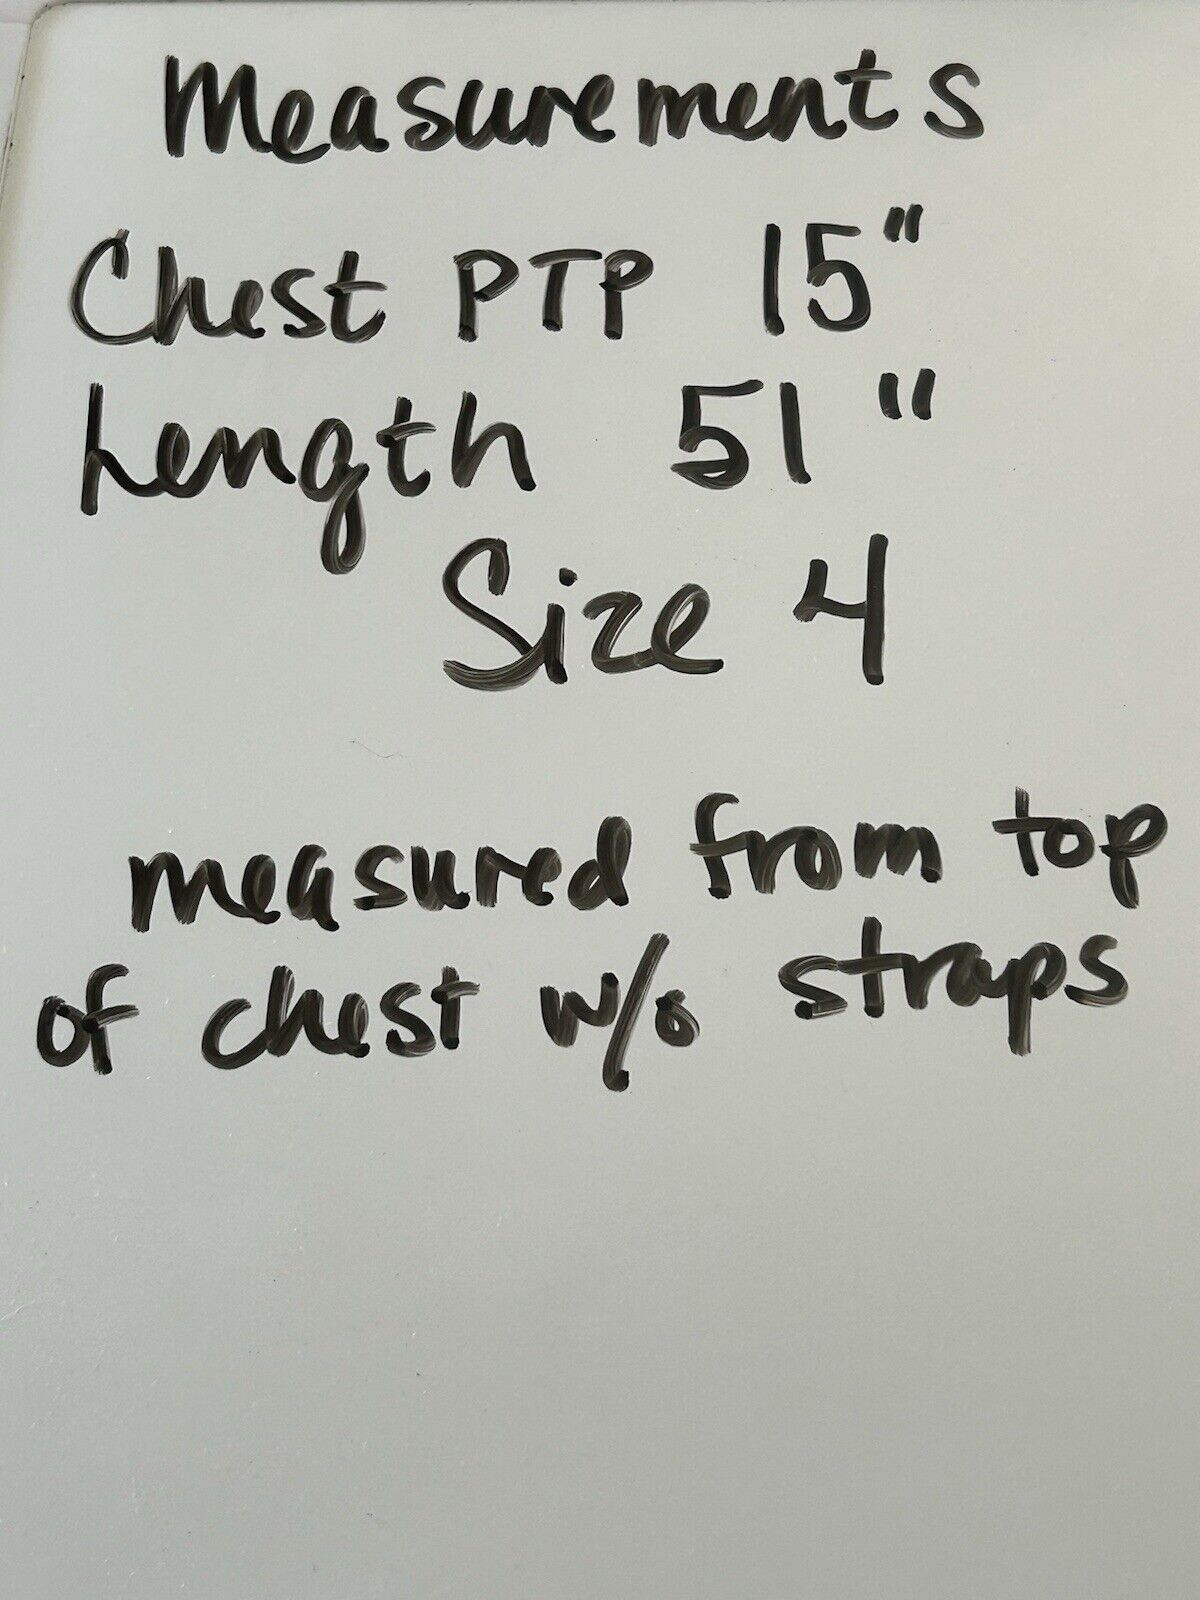 Measurements
Chest PTP 15"
Length 51"
Size 4
measured from top
of chest w/o straps